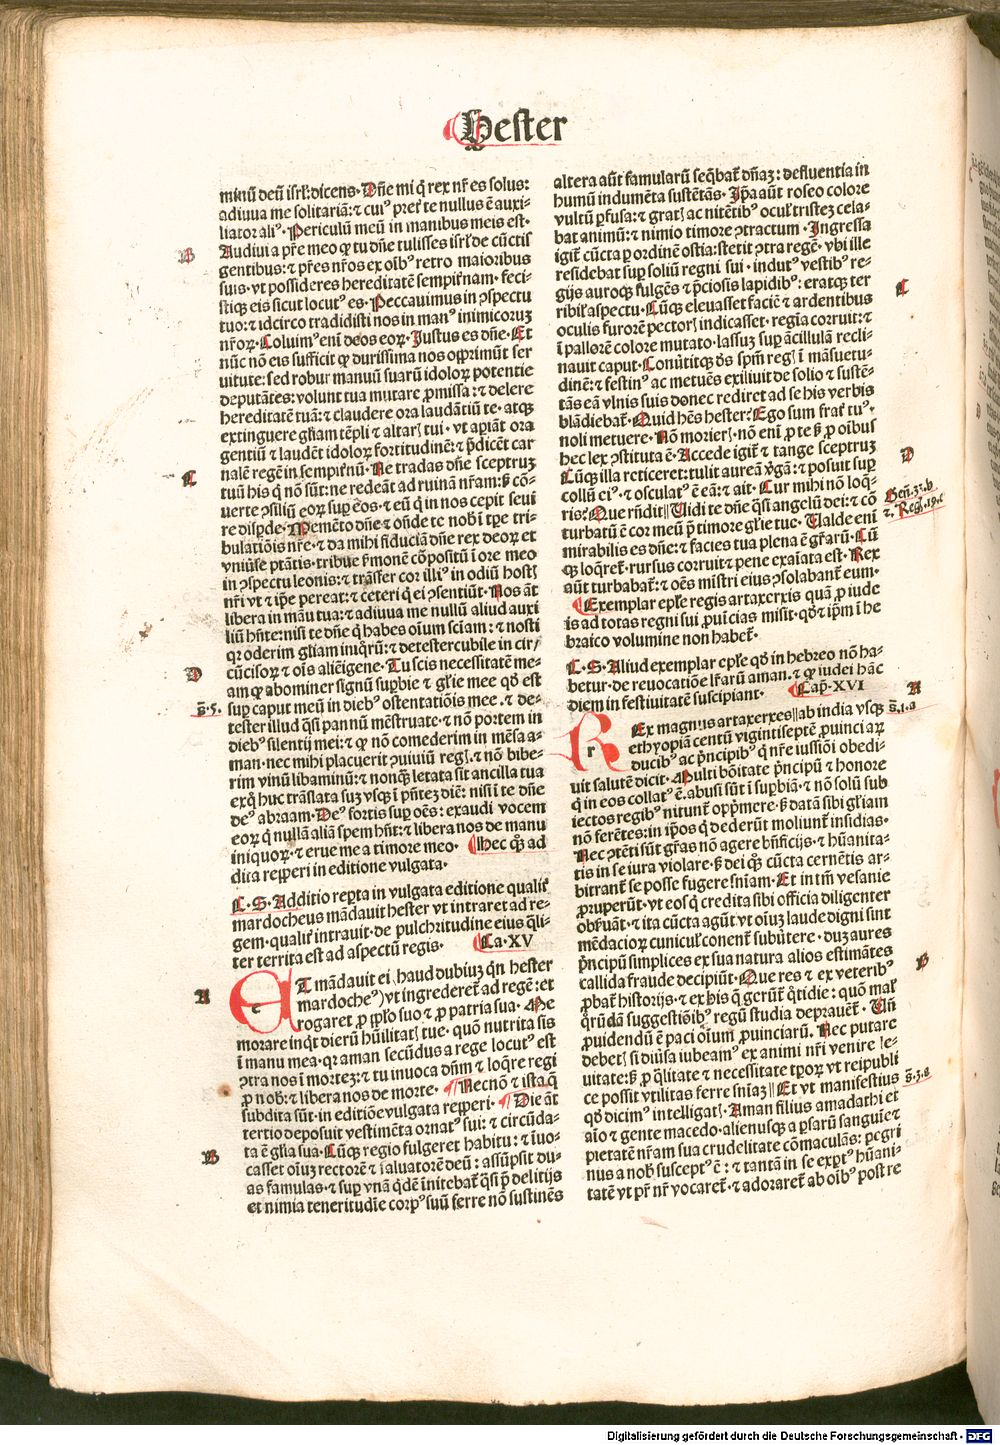 Hester
minū deū isrl':dicens·Dn̄e mi q̄ rex nr̄ es solus:
adiuua me solitariā:⁊ cuiꝰ pret' te nullus ē auxi-
liator aliꝰ·Periculū meū in manibus meis est·
B
Audiui a pr̄e meo ꝙ tu dn̄e tulisses isrl' de cūctis
gentibus:⁊ pr̄es nr̄os ex oīb⁹ retro maioribus
suis·vt possideres hereditatē sempit'nam·feci-
stiqꝫ eis sicut locut⁹ es·Peccauimus in ↄspectu
tuo:⁊ idcirco tradidisti nos in man⁹ inimicoruꝫ
nr̄oꝝ·Coluim⁹ enī deos eoꝝ·Justus es dn̄e·Et
nūc nō eis sufficit ꝙ durissima nos opprimūt ser
uitute:sed robur manuū suarū idoloꝝ potentie
deputātes:volunt tua mutare ꝓmissa:⁊ delere
hereditatē tuā:⁊ claudere ora laudātiū te·atqꝫ
extinguere gl'iam tēpli ⁊ altarꝭ tui·vt aꝑiāt ora
gentiū ⁊ laudēt idoloꝝ fortitudinē:⁊ p̄dicēt car
C
nalē regē in sempit'nū·Ne tradas dn̄e sceptruꝫ
tuū his q̄ nō sūt:ne redeāt ad ruinā nr̄am:ꝭ cō-
uerte ↄsiliū eoꝝ suꝑ eos:⁊ eū q̄ in nos cepit seui
re disꝑde·Memēto dn̄e ⁊ on̄de te nob̄ ī tꝑe tri-
bulatiōis nr̄e·⁊ da mihi fiduciā dn̄e rex deoꝝ et
vniūse ptātis·tribue s̄monē cōpositū ī ore meo
in ↄspectu leonis:⁊ trāsfer cor illi⁹ in odiū hostꝭ
nr̄i vt ⁊ ip̄e pereat:⁊ ceteri q̄ ei ↄsentiūt·Nos āt
libera in māu tua:⁊ adiuua me nullū aliud auxi
liū hn̄te:nisi te dn̄e q̄ habes oīum sciam:⁊ nosti
qꝛ oderim gl'iam iniqꝝ:⁊ detester cubile in cir/
D
cūcisoꝝ ⁊ oīs aliēigene·Tu scis necessitatē me-
am ꝙ abominer signū suꝑbie ⁊ gl'ie mee qð est
s̄·5·
suꝑ caput meū in dieb⁹ ostentatiōis mee·⁊ de-
tester illud q̄si pannū mēstruate·⁊ nō portem in
dieb⁹ silentij mei:⁊ ꝙ nō comederim in mēsa a-
man·nec mihi placuerit ↄuiuiū regꝭ·⁊ nō bibe-
rim vinū libaminū:⁊ nonqꝫ letata sit ancilla tua
exq̄ huc trāslata suꝫ vsqꝫ ī pn̄teꝫ diē:nisi ī te dn̄e
de⁹ abraam·De⁹ fortis suꝑ oēs:exaudi vocem
eoꝝ q̄ nullā aliā spem hn̄t:⁊ libera nos de manu
iniquoꝝ·⁊ erue me a timore meo· Hec qꝫ ad
dita reꝑeri in editione vulgata·
C·S·Additio reꝑta in vulgata editione qualit'
mardocheus mādauit hester vt intraret ad re-
gem·qualit' intrauit·de pulchritudine eius q̄li-
ter territa est ad aspectū regis· Ca·XV
A
e
ET mādauit ei (haud dubiuꝫ qn̄ hester
mardoche⁹) vt ingrederet' ad regē:et
rogaret ꝓ ppl'o suo ⁊ ꝓ patria sua·Me
morare inqt dierū hūilitatꝭ tue·quō nutrita sis
ī manu mea·qꝛ aman secūdus a rege locut⁹ est
ↄtra nos ī morteꝫ:⁊ tu inuoca dn̄m ⁊ loq̄re regi
ꝓ nob̄:⁊ libera nos de morte· Necnō ⁊ ista q̄
subdita sūt·in editiōe vulgata reꝑeri· Die āt
tertio deposuit vestimēta ornat⁹ sui:⁊ circūda-
ta ē gl'ia sua·Cūqꝫ regio fulgeret habitu:⁊ īuo-
B
casset oīuꝫ rectorē ⁊ saluatorē deū:assūpsit du-
as famulas·⁊ suꝑ vnā q̄dē initebat' q̄si p̄ delitijs
et nimia teneritudīe corp⁹ suū ferre nō sustinēs
altera aūt famularū seq̄bat' dn̄aꝫ:defluentia in
humū indumēta sustētās·Ip̄a aūt roseo colore
vultū ꝑfusa:⁊ gratꝭ ac nitētib⁹ ocul' tristeꝫ cela-
bat animū:⁊ nimio timore ↄtractum·Ingressa
igit' cūcta ꝑ ordinē ostia:stetit ↄtra regē·vbi ille
residebat suꝑ soliū regni sui·indut⁹ vestib⁹ re-
gijs auroqꝫ fulgēs ⁊ p̄ciosis lapidib⁹:eratqꝫ ter
C
ribil' aspectu·Cūqꝫ eleuasset faciē ⁊ ardentibus
oculis furorē pectorꝭ indicasset·regīa corruit:⁊
ī pallorē colore mutato·lassuꝫ suꝑ ācillulā recli-
nauit caput·Conūtitqꝫ d̄s spm̄ regꝭ ī māsuetu-
dinē:⁊ festin⁹ ac metuēs exiliuit de solio ⁊ sustē-
tās eā vlnis suis donec rediret ad se his verbis
blādiebat'·Quid hēs hester?Ego sum frat' tu⁹·
noli metuere·Nō morierꝭ·nō enī ꝓ te ꝭ ꝓ oībus
hec lex ↄstituta ē·Accede igit' ⁊ tange sceptruꝫ
D
Cūqꝫ illa reticeret:tulit aureā v̄gā:⁊ posuit suꝑ
collū ei⁹·⁊ osculat⁹ ē eā:⁊ ait·Cur mihi nō loq̄-
Gen̄·3ꝛ·b
ris?Que rn̄dit Uidi te dn̄e q̄si angelū dei:⁊ cō
2·Reg·19·f
turbatū ē cor meū p̄ timore gl'ie tue·Ualde enī
mirabilis es dn̄e:⁊ facies tua plena ē gr̄arū·Cū
qꝫ loq̄ret'·rursus corruit:⁊ pene exaīata est·Rex
aūt turbabat':⁊ oēs mīstri eius ↄsolabant' eum·
Exemplar epl'e regis artaxerxis quā ꝓ iude
is ad totas regni sui ꝓuīcias misit·qð ⁊ ip̄m ī he
braico volumine non habet'·
C·S·Aliud exemplar epl'e qð in hebreo nō ha-
betur·de reuocatiōe lr̄arū aman·⁊ ꝙ iudei hāc
diem in festiuitatē suscipiant· Cap̄·XVI
A
r
REx magnus artaxerxes ab india vsqꝫ
s̄·1·a
ethyopiā centū vigintiseptē ꝓuinciaꝝ
ducib⁹ ac p̄ncipib⁹ q̄ nr̄e iussiōi obedi-
uit salutē dicit·Multi bōitate p̄ncipū ⁊ honore
q̄ in eos collat⁹ ē·abusi sūt ī suꝑbiā·⁊ nō solū sub
iectos regib⁹ nitunt' opp̄mere·ꝭ datā sibi gl'iam
nō ferētes:in ip̄os q̄ dederūt moliunt' insidias·
Nec ↄtēti sūt gr̄as nō agere bn̄ficijs·⁊ hūanita-
tis in se iura violare·ꝭ dei qꝫ cūcta cernētis ar-
bitrant' se posse fugere sn̄iam·Et in tm̄ vesanie
ꝓruperūt·vt eos q̄ credita sibi officia diligenter
obs̄uāt·⁊ ita cūcta agūt vt oīuꝫ laude digni sint
mēdacioꝝ cunicul' conent' subūtere·duꝫ aures
p̄ncipū simplices ex sua natura alios estimātes
B
callida fraude decipiūt·Que res ⁊ ex veterib⁹
ꝓbat' historijs·⁊ ex his q̄ gerūt' q̄tidie:quō mal'
q̄rūdā suggestiōib⁹ regū studia deprauēt'·Un̄
ꝓuidendū ē paci oīum ꝓuinciarū·Nec putare
debetꝭ si diūsa iubeam⁹ ex animi nr̄i venire le-
uitate:ꝭ ꝓ q̄litate ⁊ necessitate tꝑoꝝ vt reipubli
s̄·3·a
ce possit vtilitas ferre sn̄iaꝫ Et vt manifestius
qð dicim⁹ intelligatꝭ·Aman filius amadathi et
aīo ⁊ gente macedo·alienusqꝫ a ꝑsarū sanguīe ⁊
pietatē nr̄am sua crudelitate cōmaculās:pegri
nus a nob̄ suscept⁹ ē:⁊ tantā in se exꝑt⁹ hūani-
tatē vt pr̄ nr̄ vocaret'·⁊ adoraret' ab oīb⁹ post re
Digitalisierung gefördert durch die Deutsche Forschungsgemeinschaft - DFG